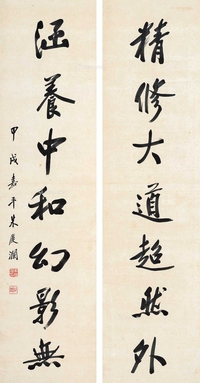 精修大道超然外
涵養中和幻影無
甲戌嘉平朱展瀾